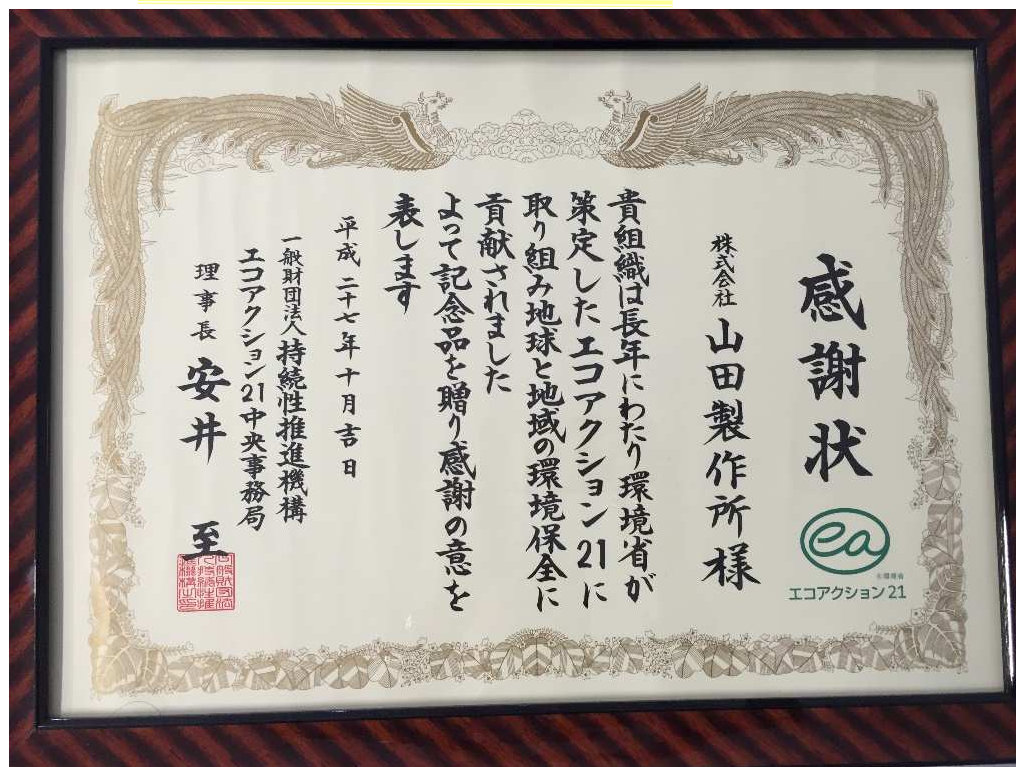 感謝状
株式会社 山田製作所様
貴組織は長年にわたり環境省が
策定したエコアクション21に
取り組み地球と地域の環境保全に
貢献されました
よって記念品を贈り感謝の意を
表します
平成二十七年十月吉日
一般財団法人持続性推進機構
エコアクション21中央事務局
理事長 安井 至
ea
©環境省
エコアクション21